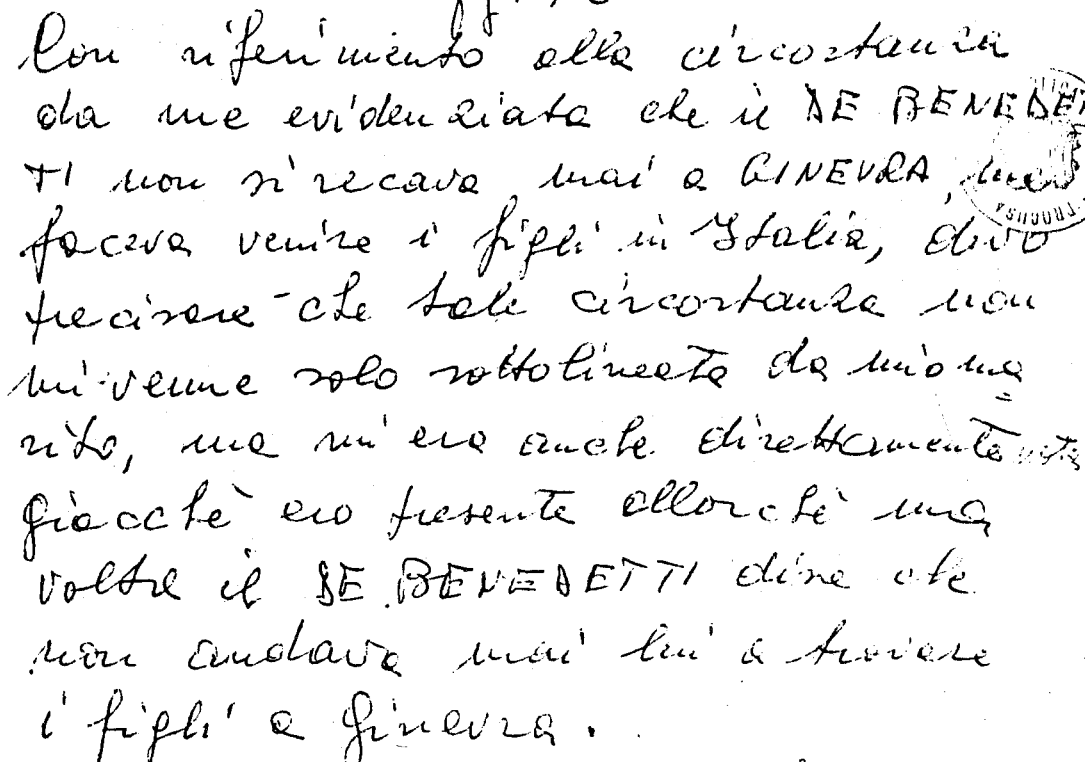 Con riferimento alla circostanza
da me evidenziata che il DE BENEDET
TI non si recava mai a GINEVRA, ma
faceva venire i figli in Italia, devo
precisare che tale circostanza non
mi venne solo sottolineata da mio ma
rito, ma mi era anche direttamente nota
giacchè ero presente allorchè una
volta il DE BENEDETTI disse che
non andava mai lui a trovare
i figli a Ginevra.